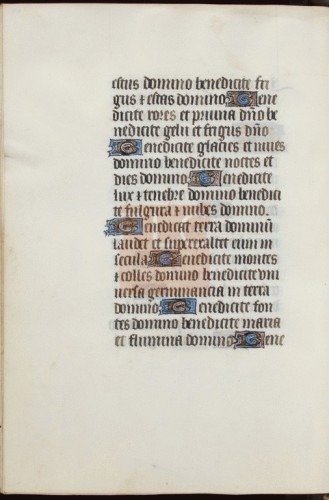 estus domino benedicite fri
gus & estas domino. Bene
dicite rores et pruina dño be
nedicite gelu et frigus dño.
Benedicite glacies et niues
domino benedicite noctes et
dies domino. Benedicite
lux & tenebre domino benedici
te fulgura & nubes domino.
Benedicat terra dominũ
laudet et superexaltet eum in
secula. Benedicite montes
& colles domino benedicite vni
uersa germinancia in terra
domino. Benedicite fon
tes domino benedicite maria
et flumina domino. Bene